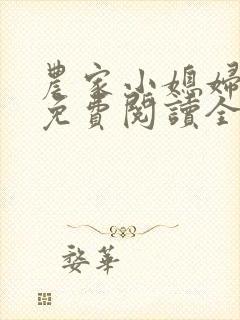 農家小媳婦
免費閱讀全
婺華